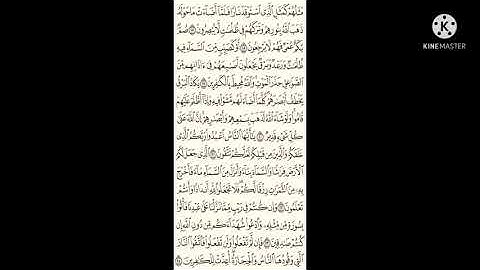 مَثَلُهُمْ كَمَثَلِ ٱلَّذِى ٱسْتَوْقَدَ نَارًا فَلَمَّآ أَضَآءَتْ مَا حَوْلَهُۥ
ذَهَبَ ٱللَّهُ بِنُورِهِمْ وَتَرَكَهُمْ فِى ظُلُمَٰتٍ لَّا يُبْصِرُونَ ١٧ صُمٌّۢ
بُكْمٌ عُمْىٌ فَهُمْ لَا يَرْجِعُونَ ١٨ أَوْ كَصَيِّبٍ مِّنَ ٱلسَّمَآءِ فِيهِ
ظُلُمَٰتٌ وَرَعْدٌ وَبَرْقٌ يَجْعَلُونَ أَصَٰبِعَهُمْ فِىٓ ءَاذَانِهِم مِّنَ
ٱلصَّوَٰعِقِ حَذَرَ ٱلْمَوْتِ وَٱللَّهُ مُحِيطٌۢ بِٱلْكَٰفِرِينَ ١٩ يَكَادُ ٱلْبَرْقُ
يَخْطَفُ أَبْصَٰرَهُمْ كُلَّمَآ أَضَآءَ لَهُم مَّشَوْا۟ فِيهِ وَإِذَآ أَظْلَمَ عَلَيْهِمْ
قَامُوا۟ وَلَوْ شَآءَ ٱللَّهُ لَذَهَبَ بِسَمْعِهِمْ وَأَبْصَٰرِهِمْ إِنَّ ٱللَّهَ عَلَىٰ
كُلِّ شَىْءٍ قَدِيرٌ ٢٠ يَٰٓأَيُّهَا ٱلنَّاسُ ٱعْبُدُوا۟ رَبَّكُمُ ٱلَّذِى
خَلَقَكُمْ وَٱلَّذِينَ مِن قَبْلِكُمْ لَعَلَّكُمْ تَتَّقُونَ ٢١ ٱلَّذِى جَعَلَ لَكُمُ
ٱلْأَرْضَ فِرَٰشًا وَٱلسَّمَآءَ بِنَآءً وَأَنزَلَ مِنَ ٱلسَّمَآءِ مَآءً فَأَخْرَجَ
بِهِۦ مِنَ ٱلثَّمَرَٰتِ رِزْقًا لَّكُمْ فَلَا تَجْعَلُوا۟ لِلَّهِ أَندَادًا وَأَنتُمْ
تَعْلَمُونَ ٢٢ وَإِن كُنتُمْ فِى رَيْبٍ مِّمَّا نَزَّلْنَا عَلَىٰ عَبْدِنَا فَأْتُوا۟
بِسُورَةٍ مِّن مِّثْلِهِۦ وَٱدْعُوا۟ شُهَدَآءَكُم مِّن دُونِ ٱللَّهِ إِن
كُنتُمْ صَٰدِقِينَ ٢٣ فَإِن لَّمْ تَفْعَلُوا۟ وَلَن تَفْعَلُوا۟ فَٱتَّقُوا۟ ٱلنَّارَ
ٱلَّتِى وَقُودُهَا ٱلنَّاسُ وَٱلْحِجَارَةُ أُعِدَّتْ لِلْكَٰفِرِينَ ٢٤
KINEMASTER